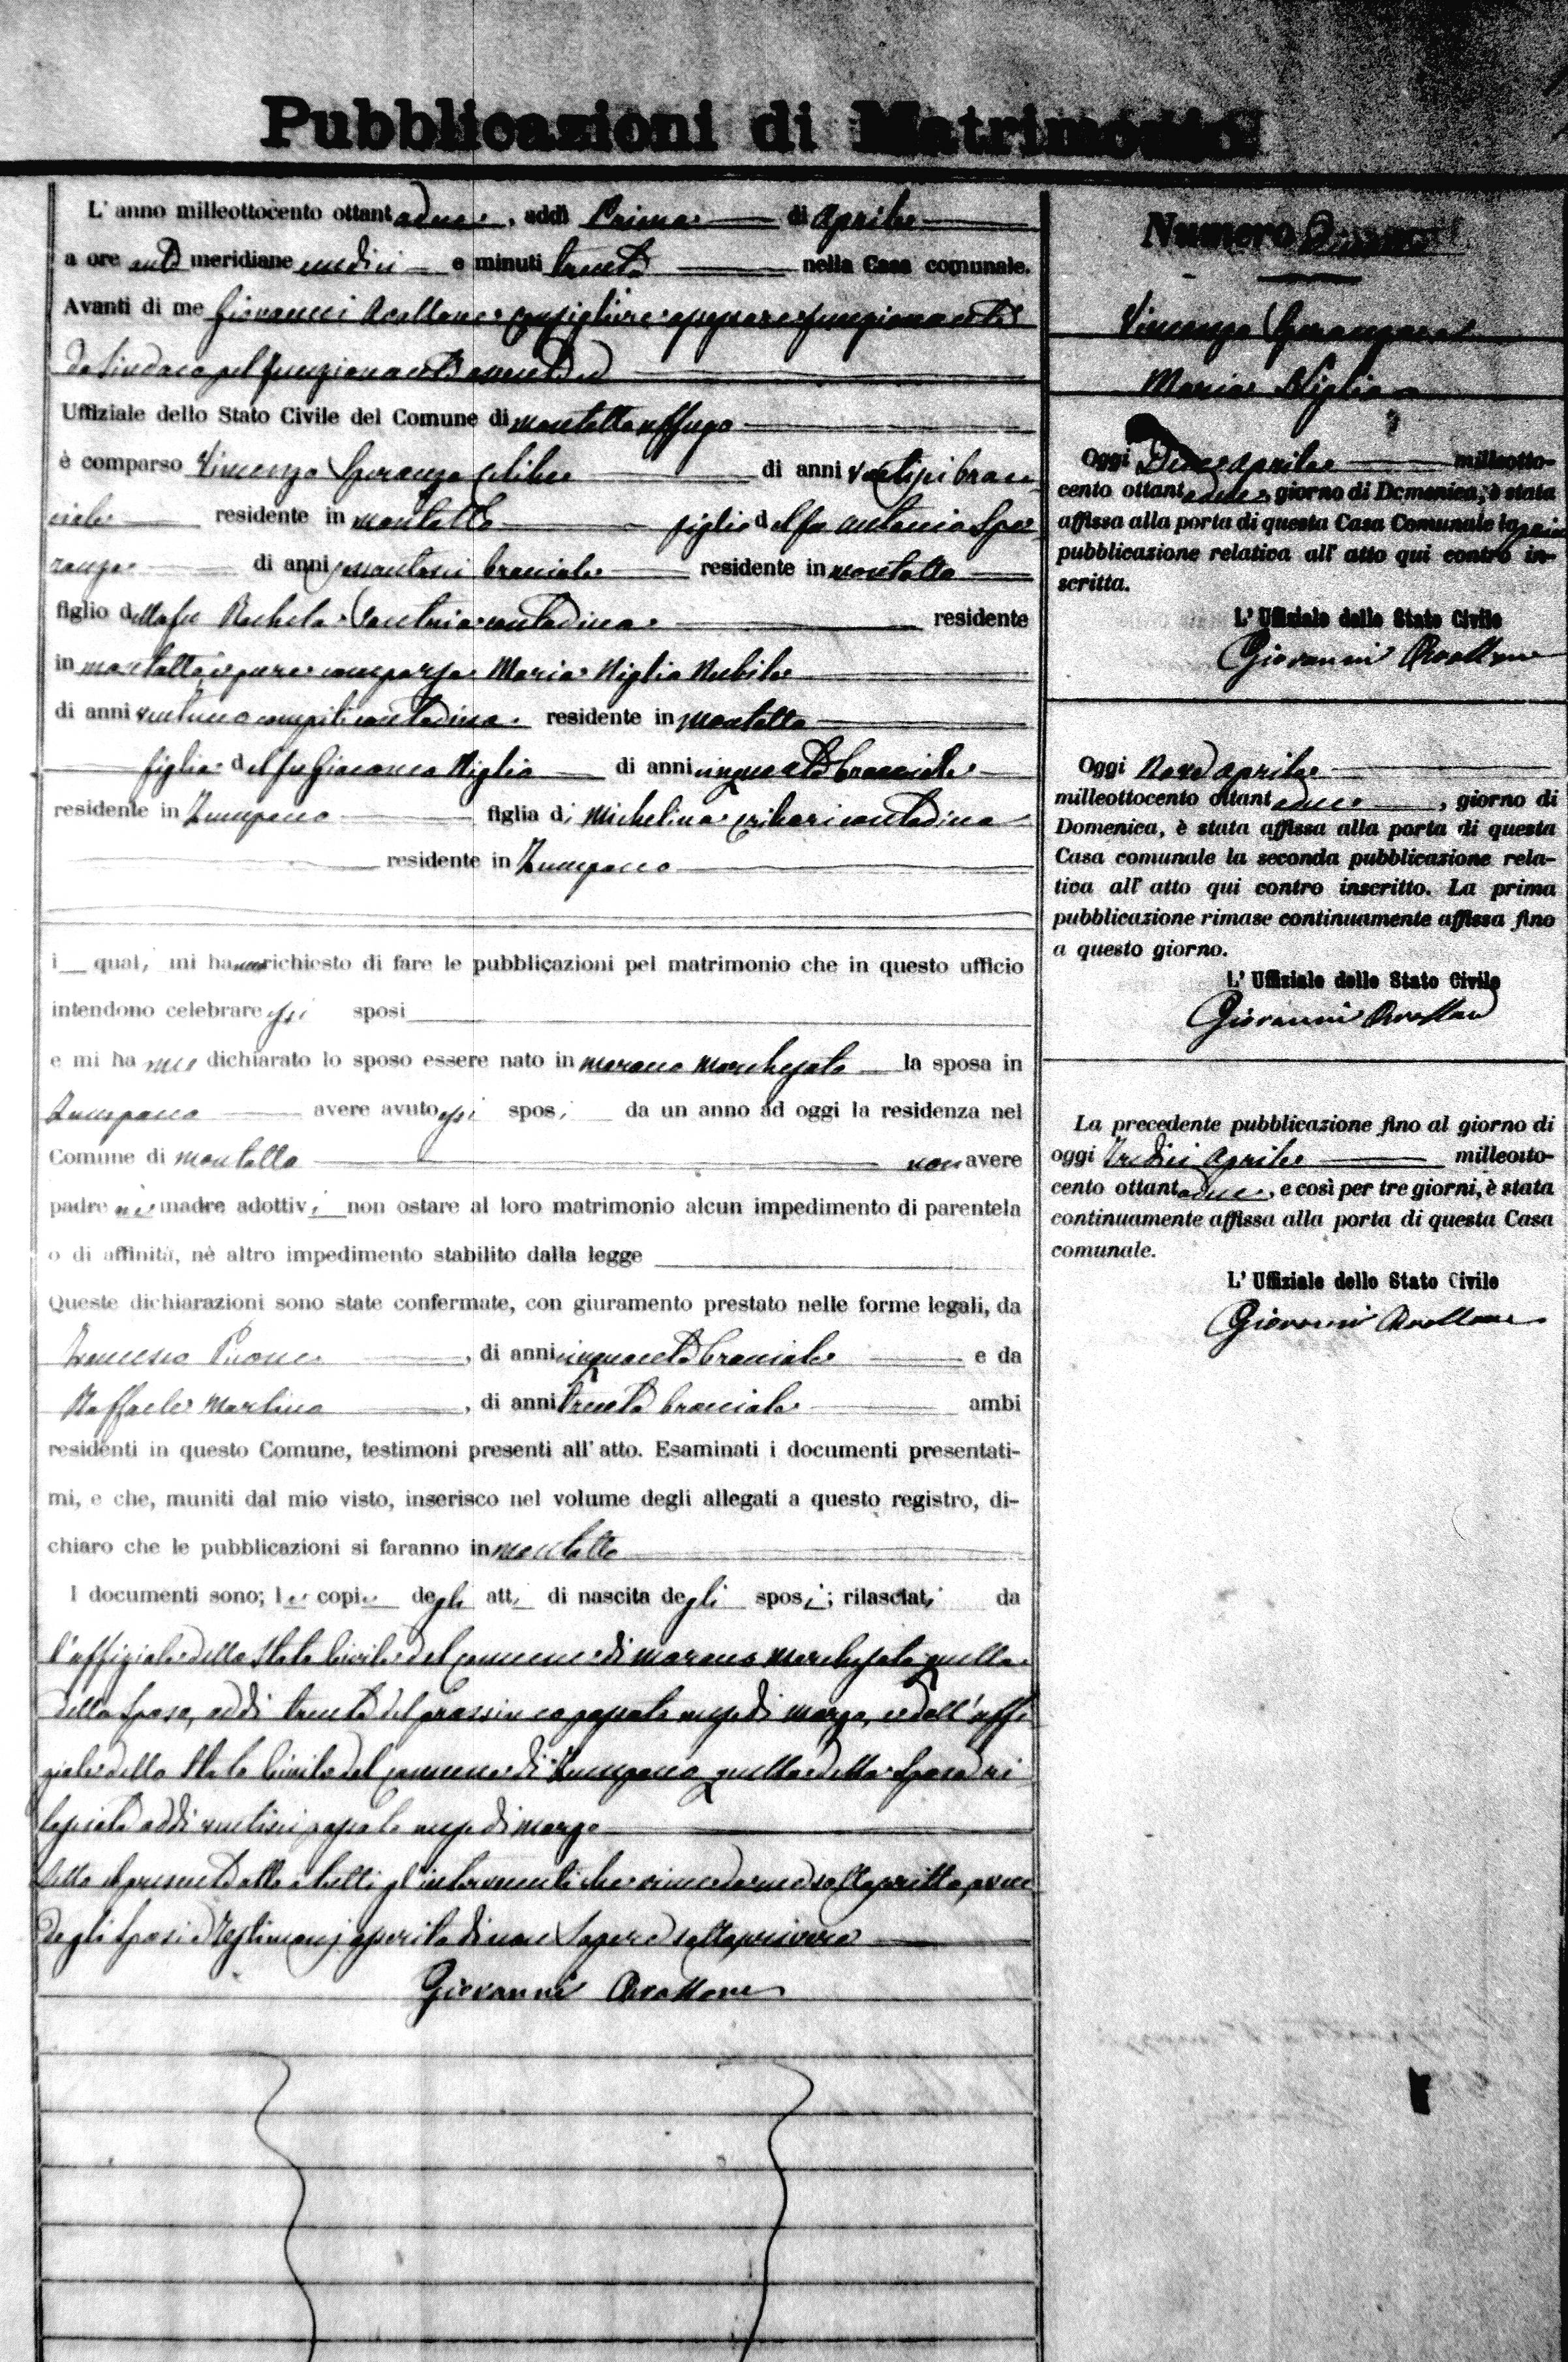 Pubblicazioni di Matrimonio
L' anno milleottocento ottantadue, addì Primo di Aprile
a ore anti meridiane undici e minuti trenta nella Casa comunale.
Avanti di me Giovanni Avollone Consigliere funzionante
da Sindaco pel funzionante
Uffiziale dello Stato Civile del Comune di Montalto Uffugo
è comparso Vincenzo Speranza Celibe di anni ventisei brac
ciale residente in Montalto figlio del fu Antonio Spe
ranza di anni sessantasei bracciale residente in Montalto
figlio della fu Rachela Santoria contadina residente
in Montalto e pure comparsa Maria Niglio Nubile
di anni ventuno compiti contadina residente in Montalto
figlia del fu Giacomo Niglio di anni cinquanta bracciale
residente in Zumpano figlia di Michelina contadina
residente in Zumpano
i quali mi hanno richiesto di fare le pubblicazioni pel matrimonio che in questo ufficio
intendono celebrare essi sposi
e mi hanno dichiarato lo sposo essere nato in Marano Marchesato la sposa in
Zumpano avere avuto essi sposi da un anno ad oggi la residenza nel
Comune di Montalto non avere
padre nè madre adottivi non ostare al loro matrimonio alcun impedimento di parentela
o di affinità, nè altro impedimento stabilito dalla legge
Queste dichiarazioni sono state confermate, con giuramento prestato nelle forme legali, da
Francesco , di anni cinquanta bracciale e da
Raffaele Martino , di anni trenta bracciale ambi
residenti in questo Comune, testimoni presenti all' atto. Esaminati i documenti presentati-
mi, e che, muniti dal mio visto, inserisco nel volume degli allegati a questo registro, di-
chiaro che le pubblicazioni si faranno in Montalto
I documenti sono; le copie degli atti di nascita degli sposi; rilasciati da
l'uffiziale dello Stato Civile del Comune di Marano Marchesato quella
dello sposo, addì trenta del prossimo passato mese di Marzo, e dell'uffi
ziale dello Stato Civile del Comune di Zumpano quella della sposa ri
lasciata addì ventisei passato mese di Marzo
Letto il presente atto a tutti gl'intervenuti
degli sposi e Testimonj asserito di non sapere sottoscrivere
Giovanni Avollone
Numero
Vincenzo Speranza
Maria Niglio
Oggi Due Aprile milleotto-
cento ottantadue, giorno di Domenica, è stata
affissa alla porta di questa Casa Comunale la prima
pubblicazione relativa all' atto qui contro in-
scritta.
L' Uffiziale dello Stato Civile
Giovanni Avollone
Oggi Nove Aprile
milleottocento ottantadue, giorno di
Domenica, è stata affissa alla porta di questa
Casa comunale la seconda pubblicazione rela-
tiva all' atto qui contro inscritto. La prima
pubblicazione rimase continuamente affissa fino
a questo giorno.
L' Uffiziale dello Stato Civile
Giovanni Avollone
La precedente pubblicazione fino al giorno di
oggi Tredici Aprile milleotto-
cento ottantadue, e così per tre giorni, è stata
continuamente affissa alla porta di questa Casa
comunale.
L' Uffiziale dello Stato Civile
Giovanni Avollone